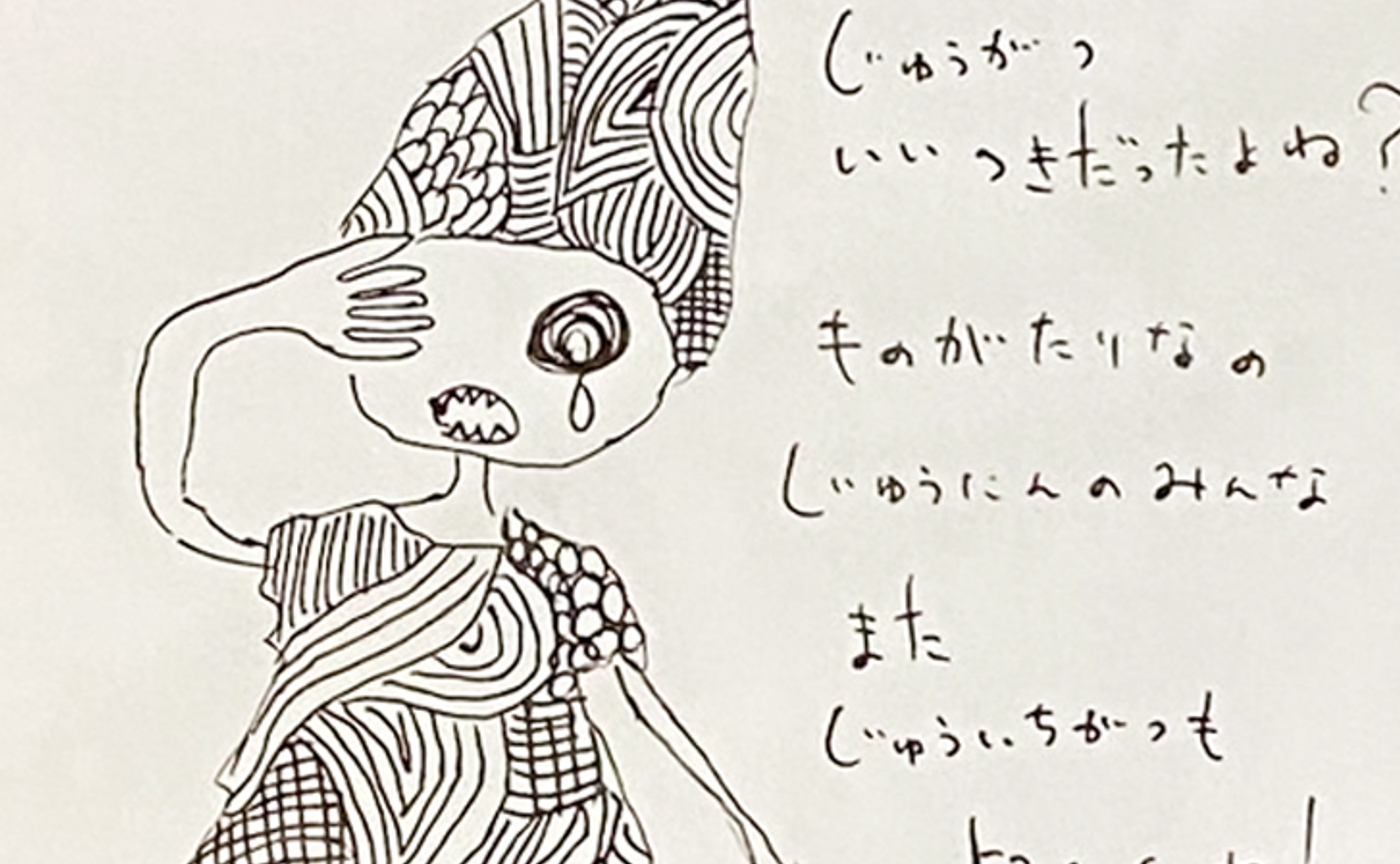 じゅうがつ
いいつきだったよね?
ものがたりなの
じゅうにんのみんな
また
じゅういちがつも